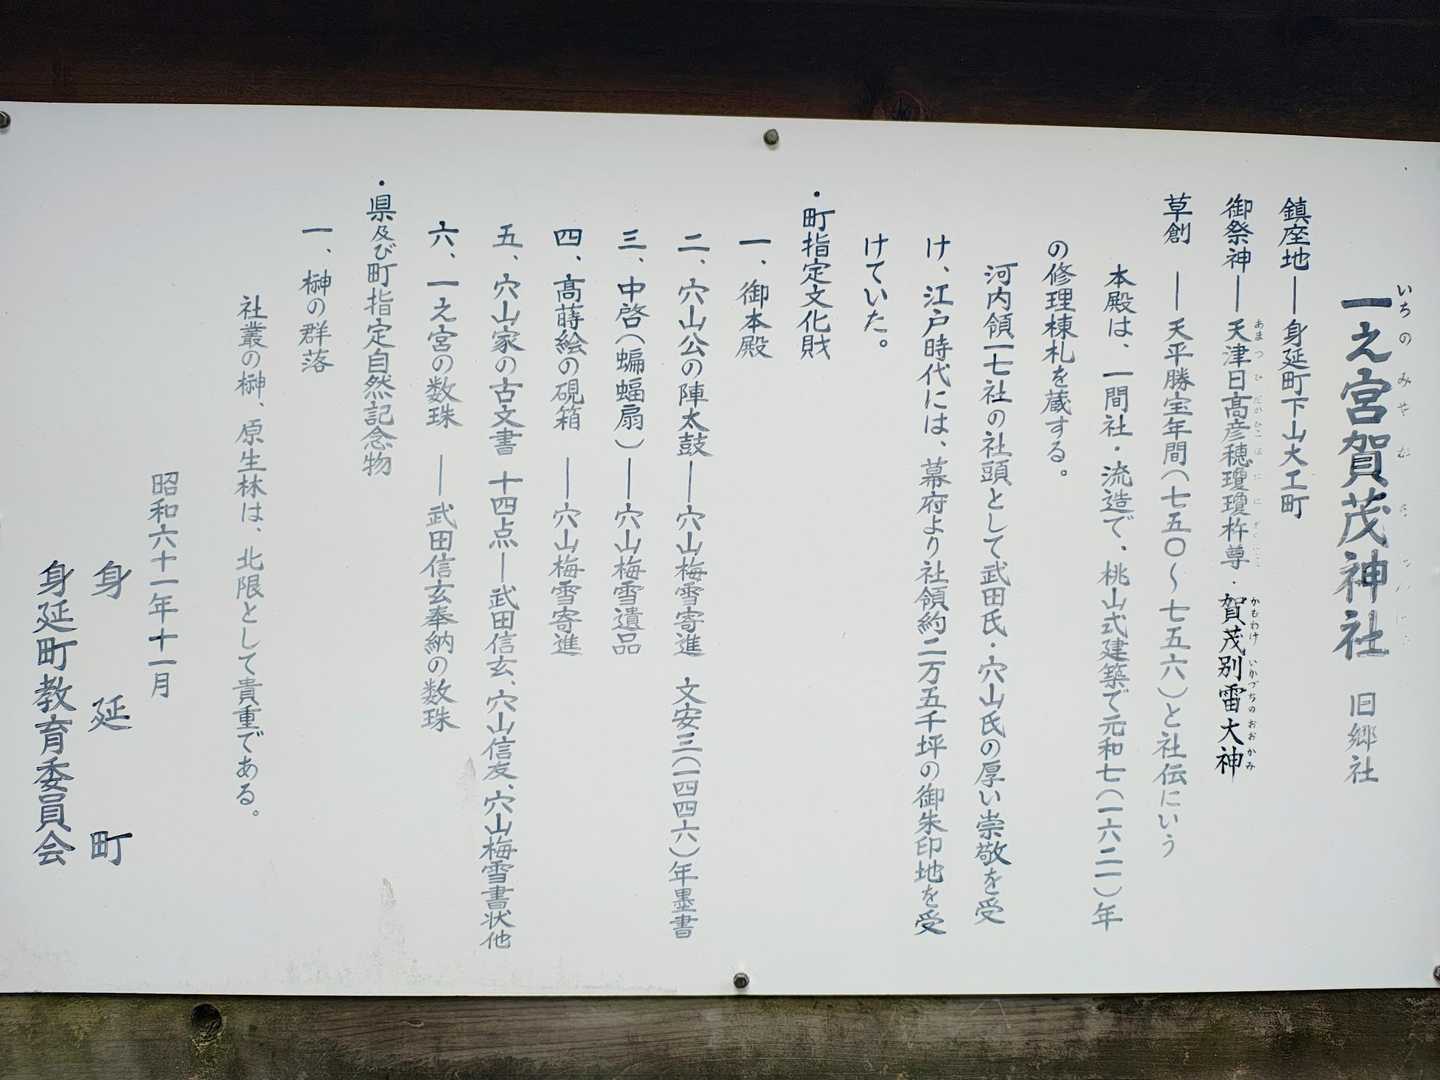 一之宮賀茂神社 旧郷社
鎮座地―身延町下山大工町
御祭神―天津日高彦穂瓊瓊杵尊・賀茂別雷大神
草創―天平勝宝年間(七五〇～七五六)と社伝にいう
本殿は、一間社・流造で、桃山式建築で元和七(一六二一)年
の修理棟札を蔵する。
河内領一七社の社頭として武田氏・穴山氏の厚い崇敬を受
け、江戸時代には、幕府より社領約二万五千坪の御朱印地を受
けていた。
・町指定文化財
一、御本殿
二、穴山公の陣太鼓―穴山梅雪寄進 文安三(一四四六)年墨書
三、中啓(蝙蝠扇)―穴山梅雪遺品
四、高蒔絵の硯箱―穴山梅雪寄進
五、穴山家の古文書 十四点―武田信玄、穴山信友、穴山梅雪書状他
六、一之宮の数珠―武田信玄奉納の数珠
・県及び町指定自然記念物
一、榊の群落
社叢の榊、原生林は、北限として貴重である。
昭和六十一年十一月
身延町
身延町教育委員会